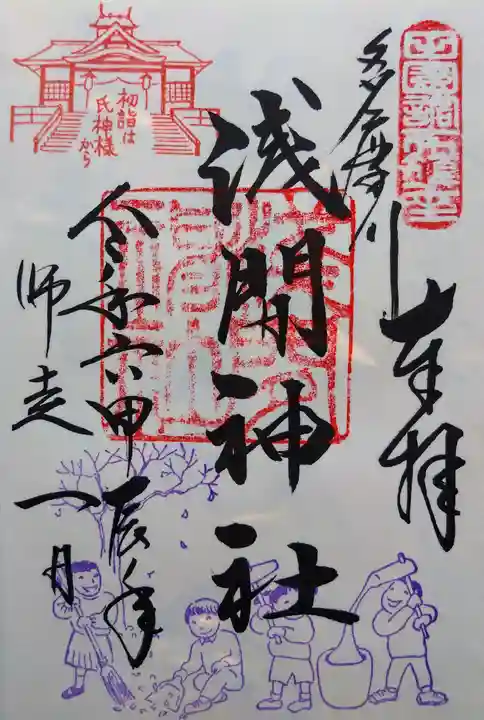 田園調布鎮座
奉拝
多摩川
浅間神社
初詣は
氏神様
から
令和六甲辰年
師走一日